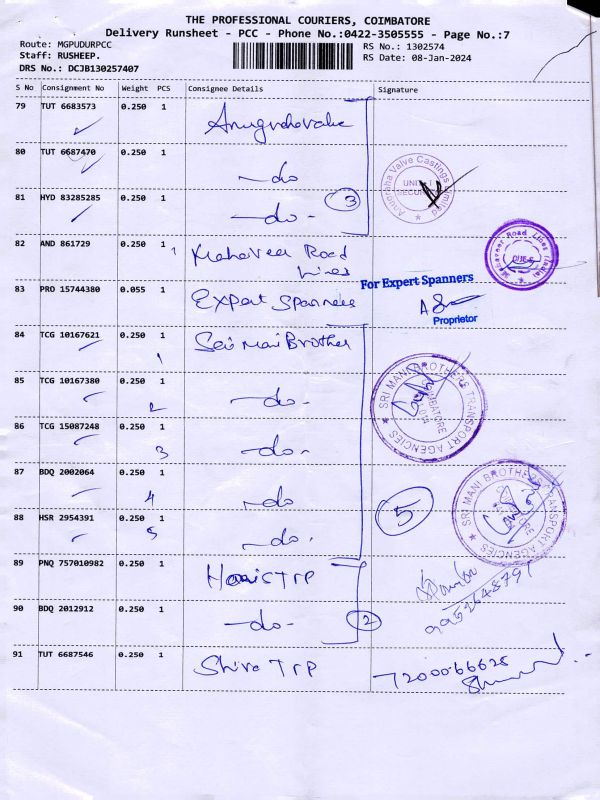 THE PROFESSIONAL COURIERS, COIMBATORE
Delivery Runsheet - PCC - Phone No.:0422-3505555 - Page No.:7
Route: MGPUDURPCC
RS No.: 1302574
Staff: RUSHEEP.
RS Date: 08-Jan-2024
DRS No.: DCJB130257407
S No Consignment No Weight PCS Consignee Details Signature
79 TUT 6683573 0.250 1
80 TUT 6687470 0.250 1 -do
Anugraha Valve Castings Limited
UNIT
SECURITY
81 HYD 83285285 0.250 1 -do- 3
82 AND 861729 0.250 1 1 Mahaveer Road Lines
Mahaveer Road Lines (India)
83 PRO 15744380 0.055 1 Expert Spanners
For Expert Spanners
Proprietor
84 TCG 10167621 0.250 1 Sri Mani Brother
1
SRI MANI BROTHERS TRANSPORT AGENCIES
COIMBATORE
85 TCG 10167380 0.250 1 -do-
2
86 TCG 15087248 0.250 1 -do-
3
87 BDQ 2002064 0.250 1 -do
4
5
SRI MANI BROTHERS TRANSPORT AGENCIES
88 HSR 2954391 0.250 1 -do.
5
89 PNQ 757010982 0.250 1 Haris TRP
9952648791
90 BDQ 2012912 0.250 1 -do- 2
91 TUT 6687546 0.250 1 Shiva TRP
7200066628